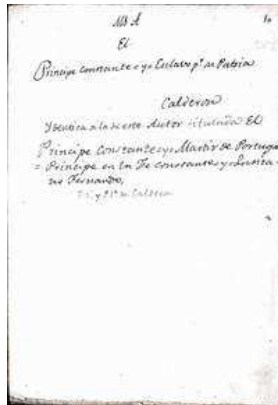 El
Principe constante y Esclavo pr. su Patria
Calderon
Ydentica a la de este Autor titulada El
Principe Constante y Martir de Portugal
= Principe en la Fe constante y Lusita
no Fernando,